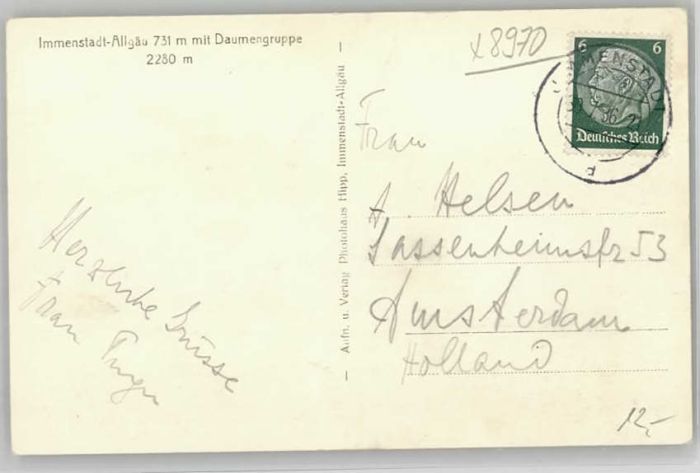 Immenstadt-Allgäu 731 m mit Daumengruppe
2280 m
x 8970
6 6
IMMENSTADT
36
Deutsches Reich
d
Aufn. u. Verlag Photohaus Hipp, Immenstadt-Allgäu
Frau
A. Helsen
Sassenheimstr 53
Amsterdam
Holland
Herzliche Grüsse
Frau
12,-